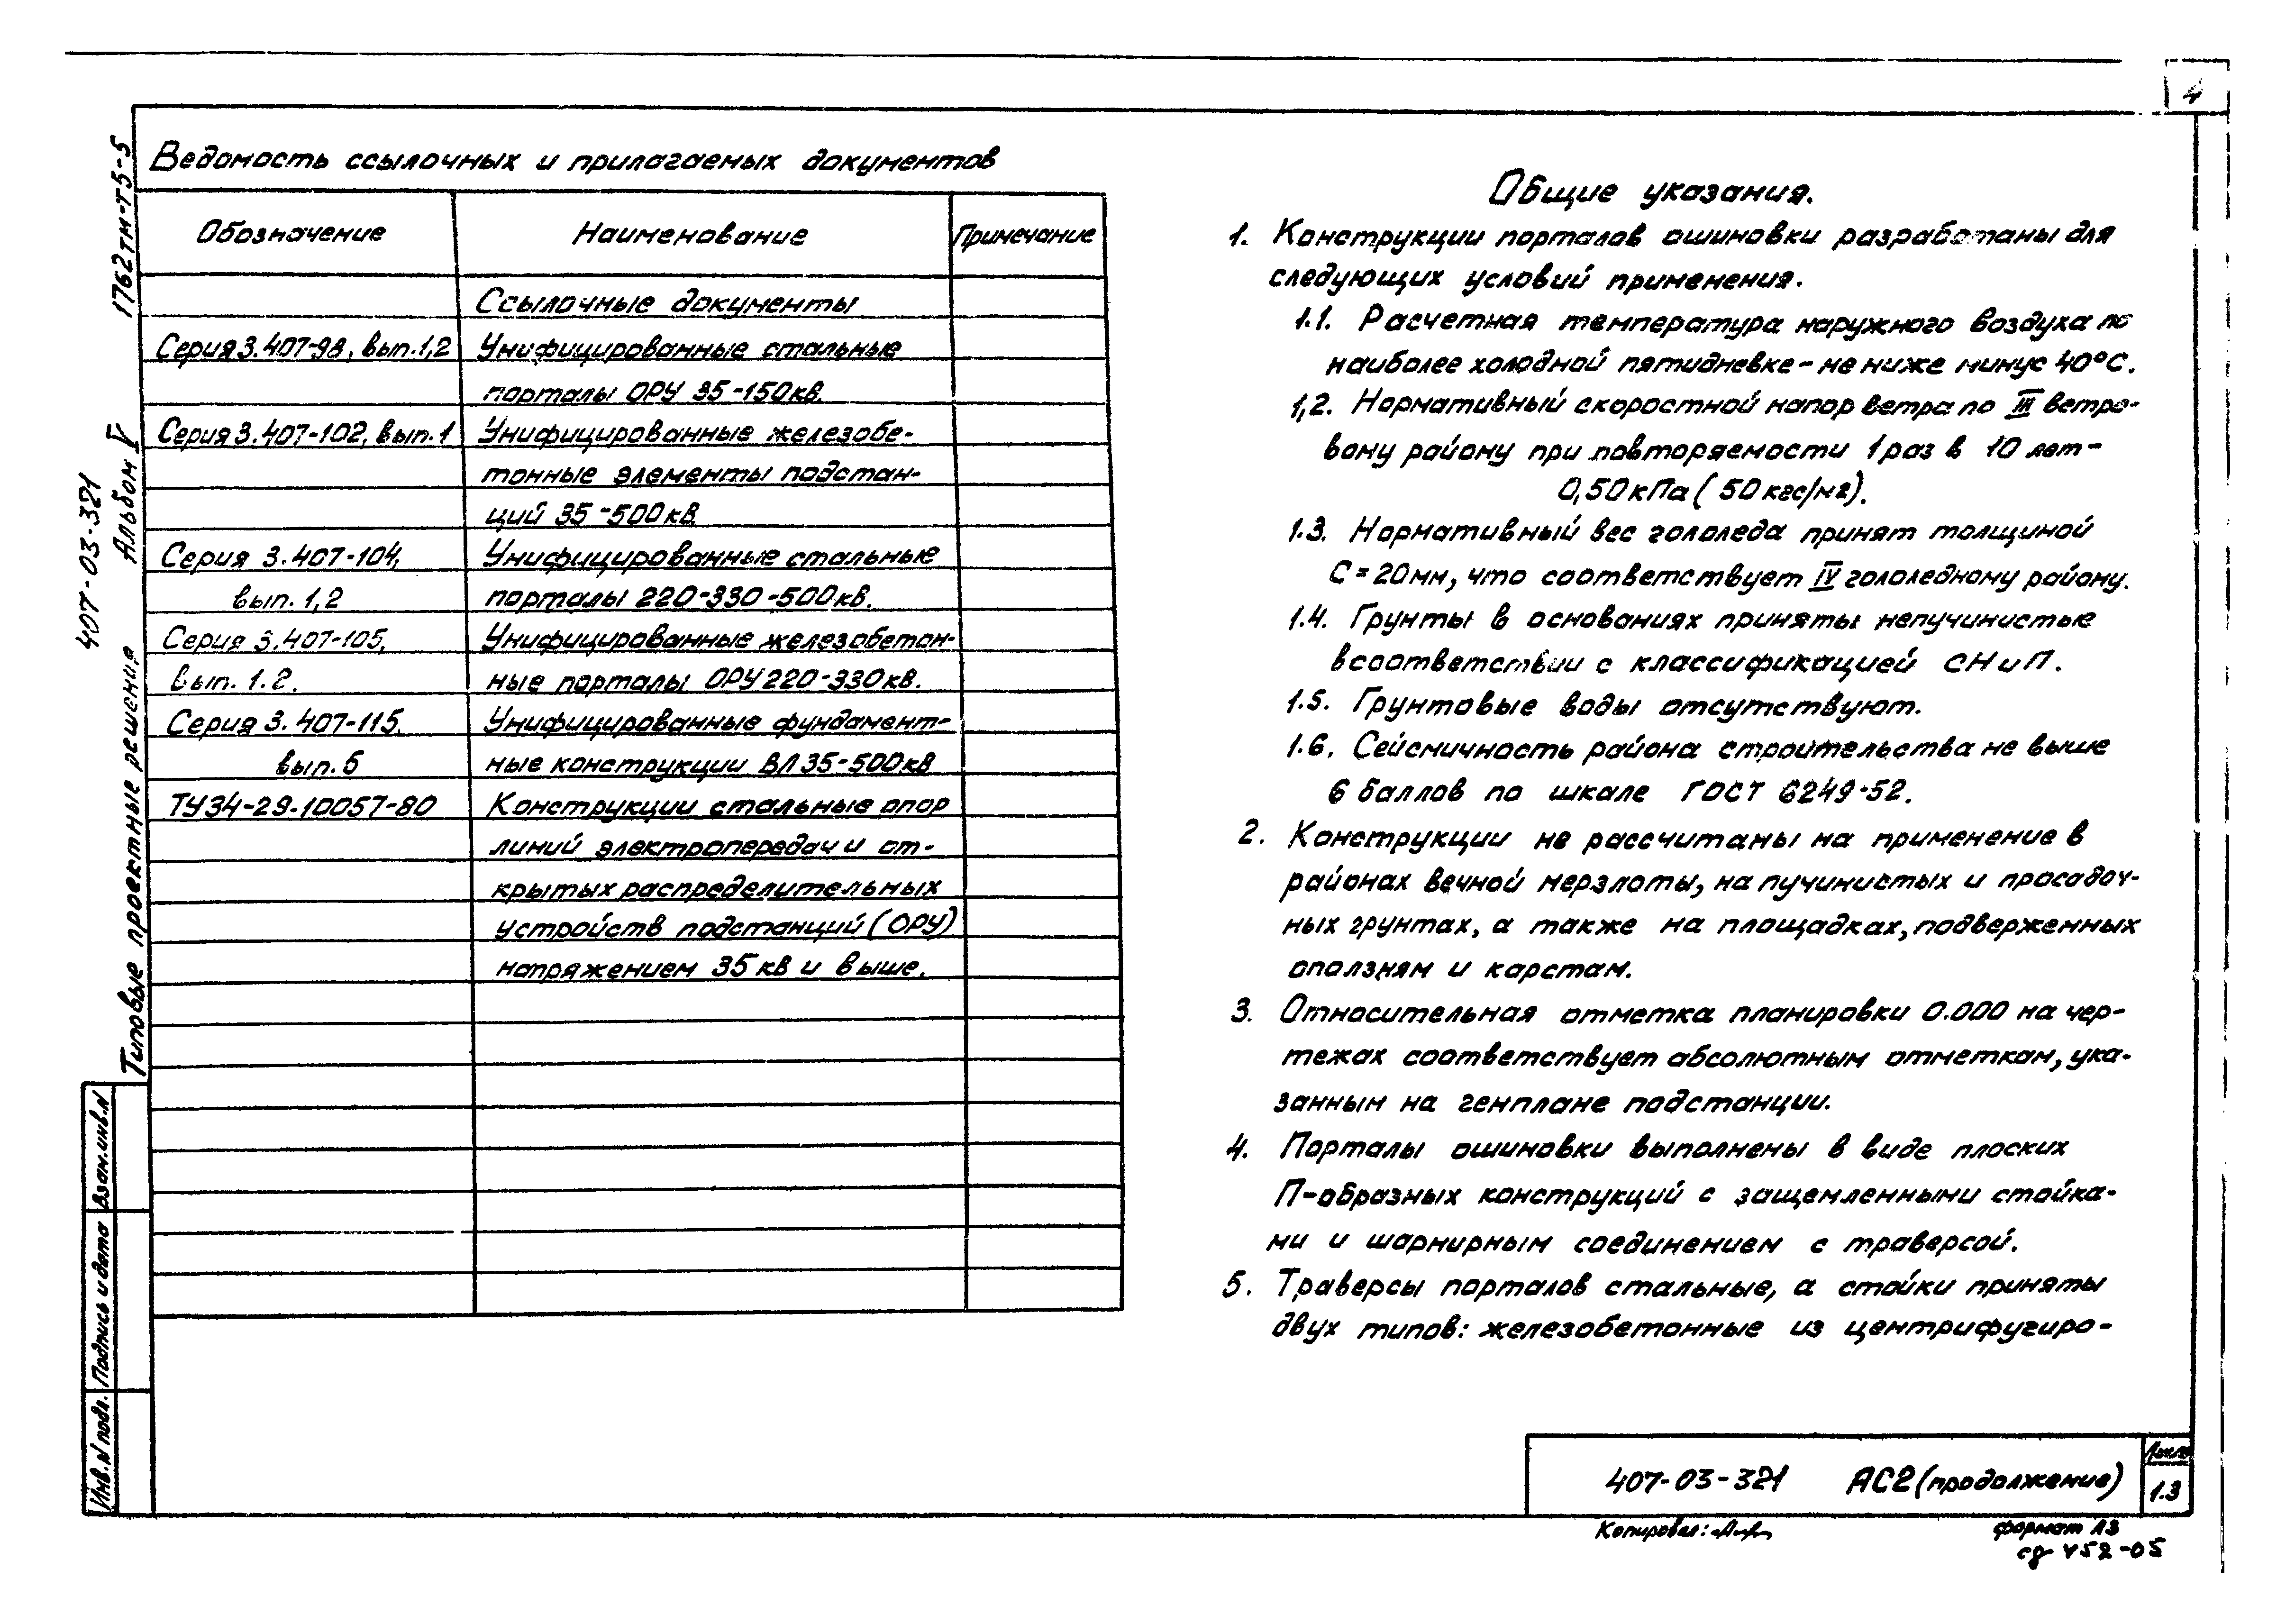 4
1762тм-т5-5
407-03-321
Альбом V
Типовые проектные решения
Ведомость ссылочных и прилагаемых документов
Обозначение Наименование Примечание
Ссылочные документы
Серия 3.407-98, вып.1,2 Унифицированные стальные
порталы ОРУ 35-150кв.
Серия 3.407-102, вып.1 Унифицированные железобе-
тонные элементы подстан-
ций 35-500кв
Серия 3.407-104, Унифицированные стальные
вып. 1,2 порталы 220-330-500кв.
Серия 3.407-105, Унифицированные железобетон-
вып. 1.2. ные порталы ОРУ 220-330кв.
Серия 3.407-115. Унифицированные фундамент-
вып. 5 ные конструкции ВЛ 35-500кв
ТУ34-29-10057-80 Конструкции стальные опор
линий электропередач и от-
крытых распределительных
устройств подстанций (ОРУ)
напряжением 35 кв и выше.
Общие указания.
1. Конструкции порталов ошиновки разработаны для
следующих условий применения.
1.1. Расчетная температура наружного воздуха по
наиболее холодной пятидневке - не ниже минус 40°С.
1,2. Нормативный скоростной напор ветра по III ветро-
вому району при повторяемости 1 раз в 10 лет -
0,50 кПа (50 кгс/м2).
1.3. Нормативный вес гололеда принят толщиной
С = 20мм, что соответствует IV гололедному району.
1.4. Грунты в основаниях приняты непучинистые
в соответствии с классификацией СНиП.
1.5. Грунтовые воды отсутствуют.
1.6. Сейсмичность района строительства не выше
6 баллов по шкале ГОСТ 6249-52.
2. Конструкции не рассчитаны на применение в
районах вечной мерзлоты, на пучинистых и просадоч-
ных грунтах, а также на площадках, подверженных
оползням и карстам.
3. Относительная отметка планировки 0.000 на чер-
тежах соответствует абсолютным отметкам, ука-
занным на генплане подстанции.
4. Порталы ошиновки выполнены в виде плоских
П-образных конструкций с защемленными стойка-
ми и шарнирным соединением с траверсой.
5. Траверсы порталов стальные, а стойки приняты
двух типов: железобетонные из центрифугиро-
Взам.инв.N
Подпись и дата
Инв.N подл.
407-03-321 АС2 (продолжение)
Лист
1.3
Копировал:
формат А3
452-05